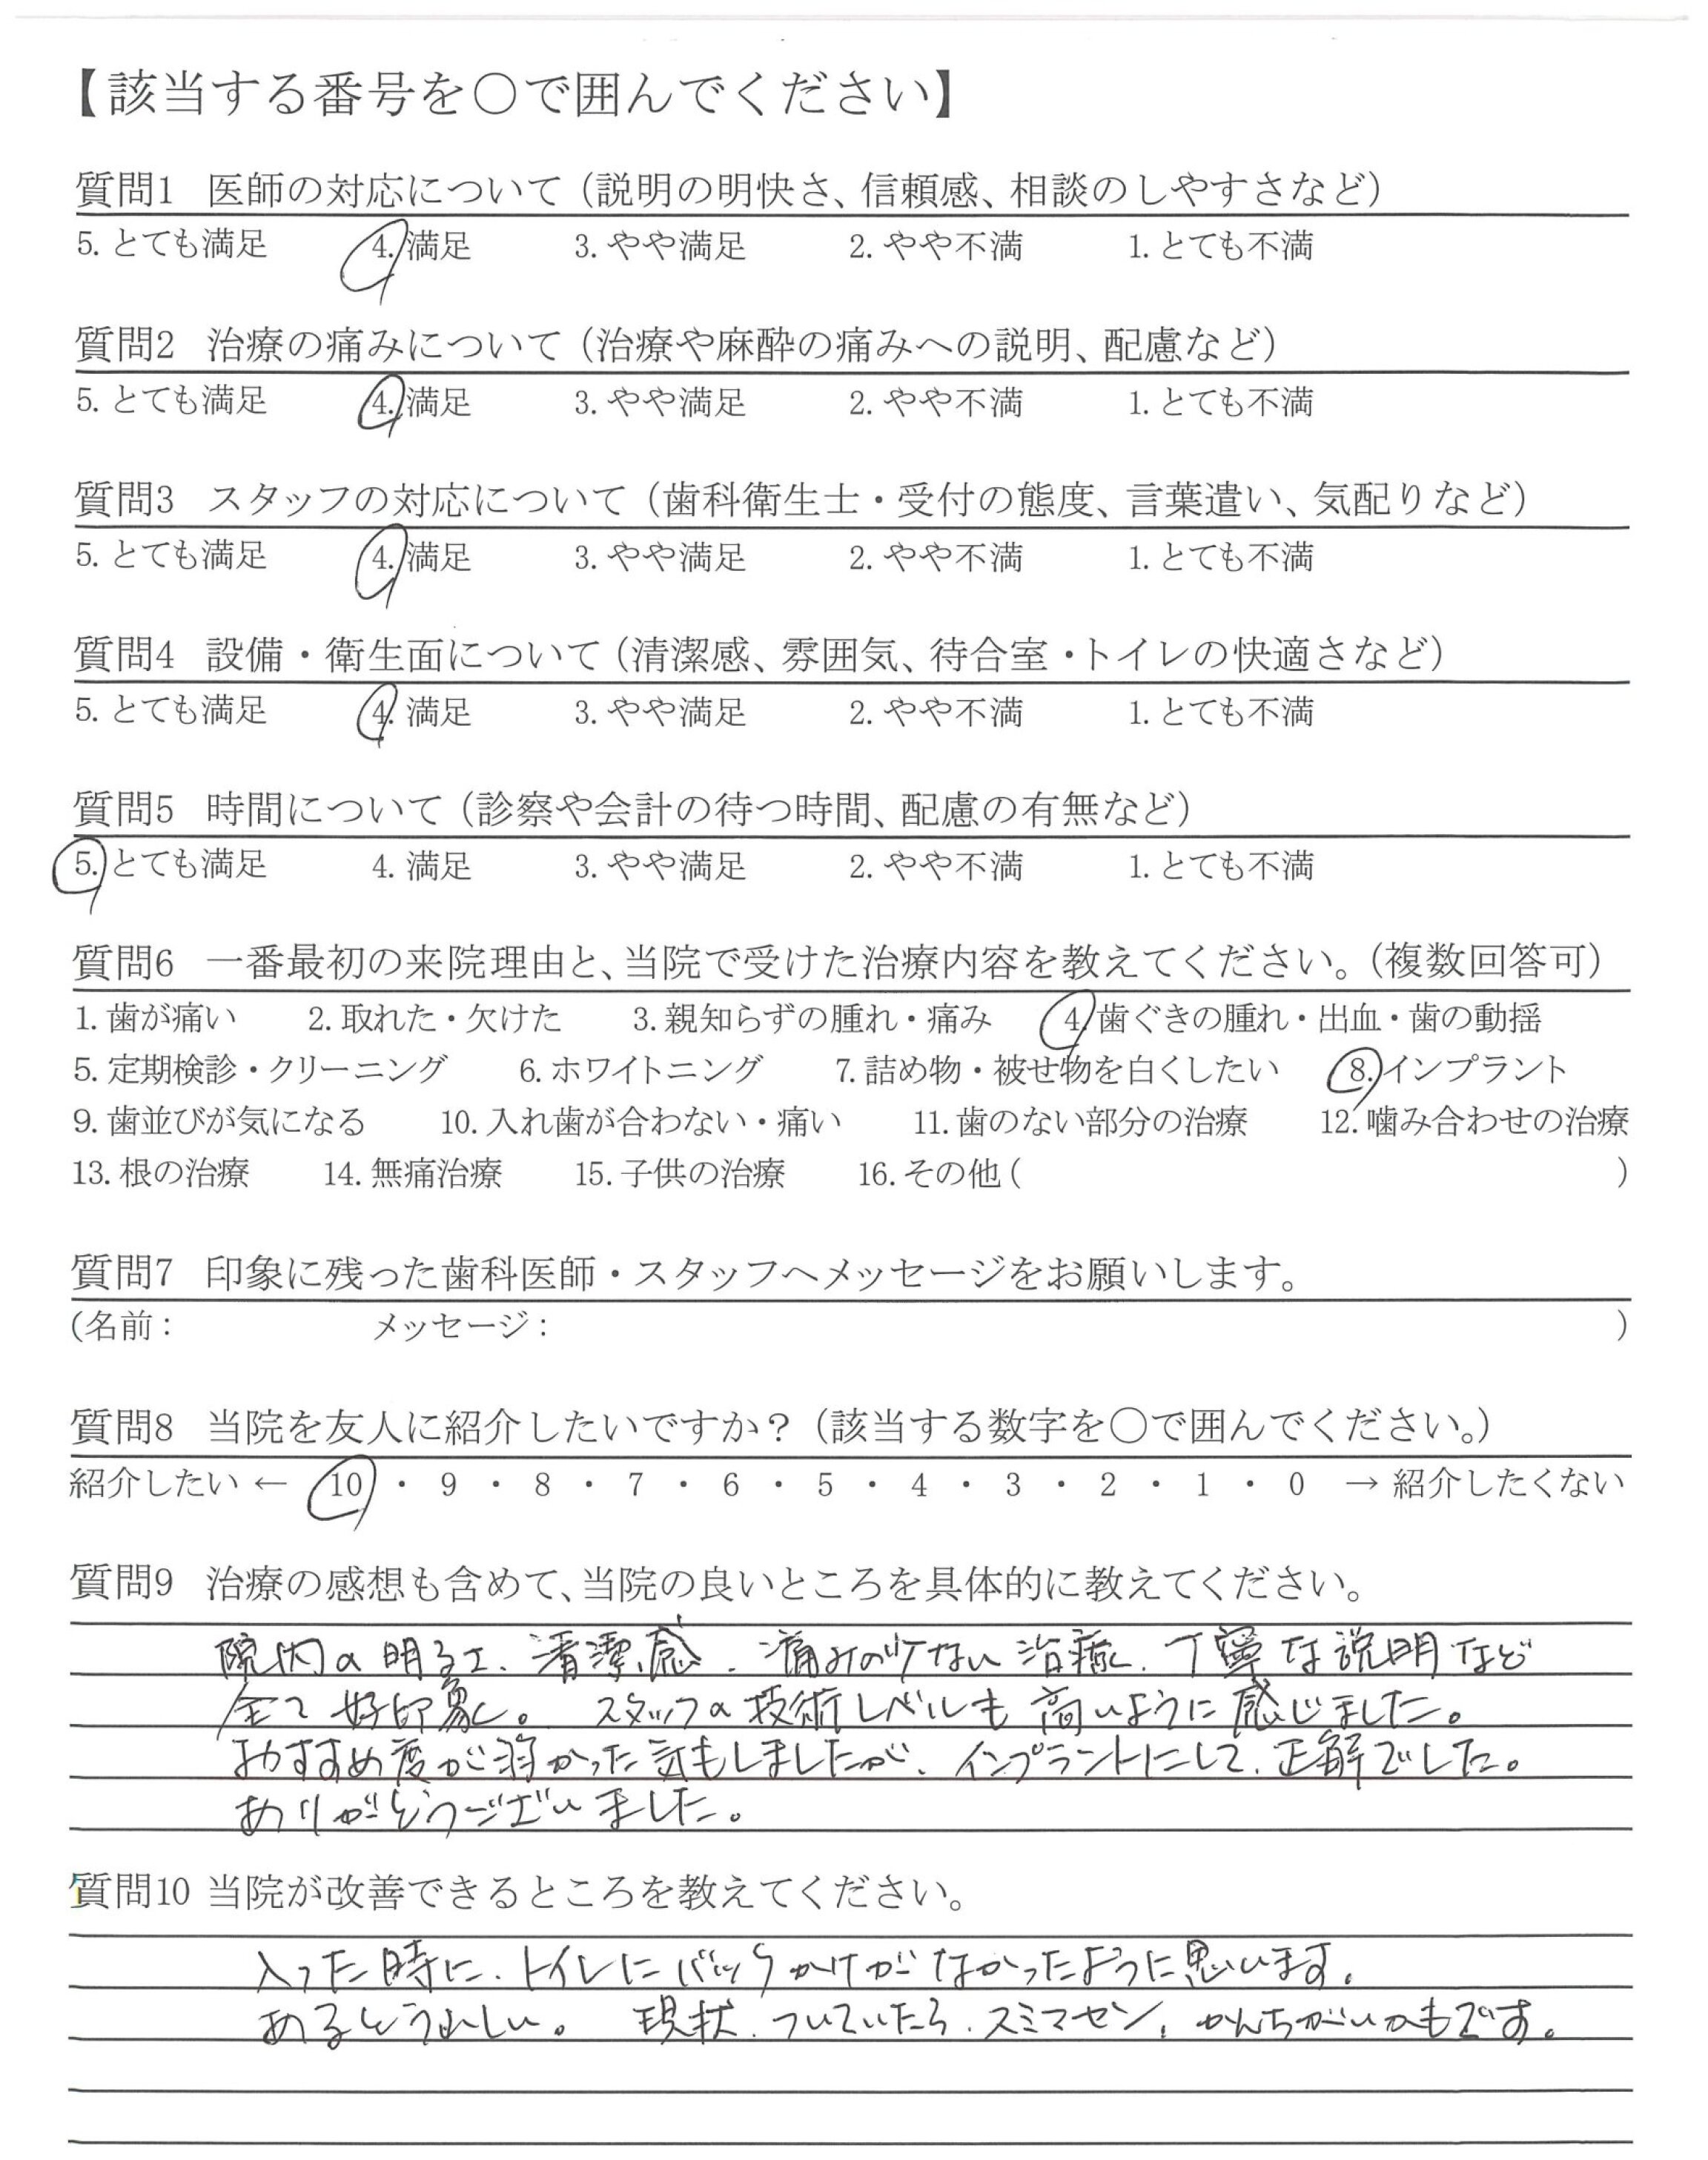 【該当する番号を〇で囲んでください】
質問1 医師の対応について（説明の明快さ、信頼感、相談のしやすさなど）
5. とても満足 4. 満足 3. やや満足 2. やや不満 1. とても不満
質問2 治療の痛みについて（治療や麻酔の痛みへの説明、配慮など）
5. とても満足 4. 満足 3. やや満足 2. やや不満 1. とても不満
質問3 スタッフの対応について（歯科衛生士・受付の態度、言葉遣い、気配りなど）
5. とても満足 4. 満足 3. やや満足 2. やや不満 1. とても不満
質問4 設備・衛生面について（清潔感、雰囲気、待合室・トイレの快適さなど）
5. とても満足 4. 満足 3. やや満足 2. やや不満 1. とても不満
質問5 時間について（診察や会計の待つ時間、配慮の有無など）
5. とても満足 4. 満足 3. やや満足 2. やや不満 1. とても不満
質問6 一番最初の来院理由と、当院で受けた治療内容を教えてください。（複数回答可）
1. 歯が痛い 2. 取れた・欠けた 3. 親知らずの腫れ・痛み 4. 歯ぐきの腫れ・出血・歯の動揺
5. 定期検診・クリーニング 6. ホワイトニング 7. 詰め物・被せ物を白くしたい 8. インプラント
9. 歯並びが気になる 10. 入れ歯が合わない・痛い 11. 歯のない部分の治療 12. 噛み合わせの治療
13. 根の治療 14. 無痛治療 15. 子供の治療 16. その他（ ）
質問7 印象に残った歯科医師・スタッフへメッセージをお願いします。
（名前： メッセージ： ）
質問8 当院を友人に紹介したいですか？（該当する数字を〇で囲んでください。）
紹介したい ← 10 ・ 9 ・ 8 ・ 7 ・ 6 ・ 5 ・ 4 ・ 3 ・ 2 ・ 1 ・ 0 → 紹介したくない
質問9 治療の感想も含めて、当院の良いところを具体的に教えてください。
院内の明るさ、清潔感、痛みの少ない治療、丁寧な説明など
全て好印象。スタッフの技術レベルも高いように感じました。
おすすめ度が弱かった気もしましたが、インプラントにして、正解でした。
ありがとうございました。
質問10 当院が改善できるところを教えてください。
入った時に、トイレにバッグかけがなかったように思います。
あるとうれしい。 現状、ついていたら、スミマセン、かんちがいかもです。